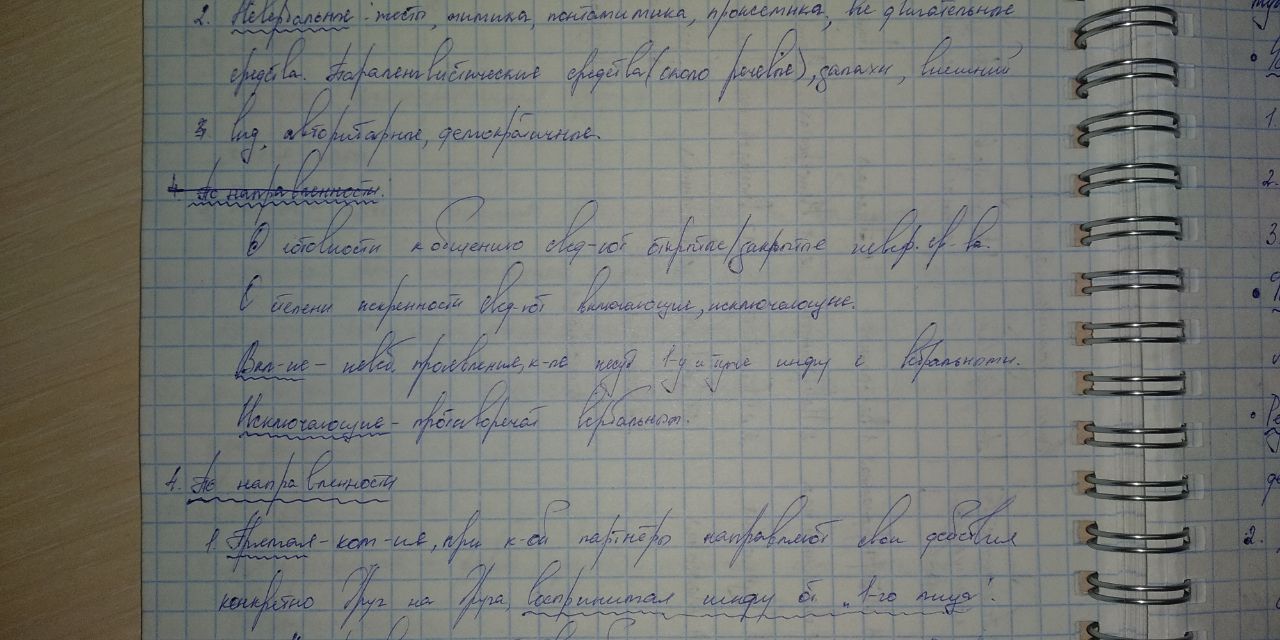 2. Невербальные: жесты, мимика, пантомимика, проксемика, все двигательные
средства. Паралингвистические средства (около речевые), запахи, внешний
вид, авторитарные, демократичные.
4. По направленности.
О готовности к общению свид-ют открытые/закрытые невер. ср-ва.
О степени искренности свид-ют включающие, исключающие.
Вкл-ие – невеб. проявления, к-ые несут 1-у и ту же инфу с вербальными.
Исключающие – противоречат вербальным.
4. По направленности
1. Прямая – ком-ия, при к-ой партнёры направляют свои действия
конкретно друг на друга, воспринимая инфу от „1-го лица".
1.
2.
3.
2.